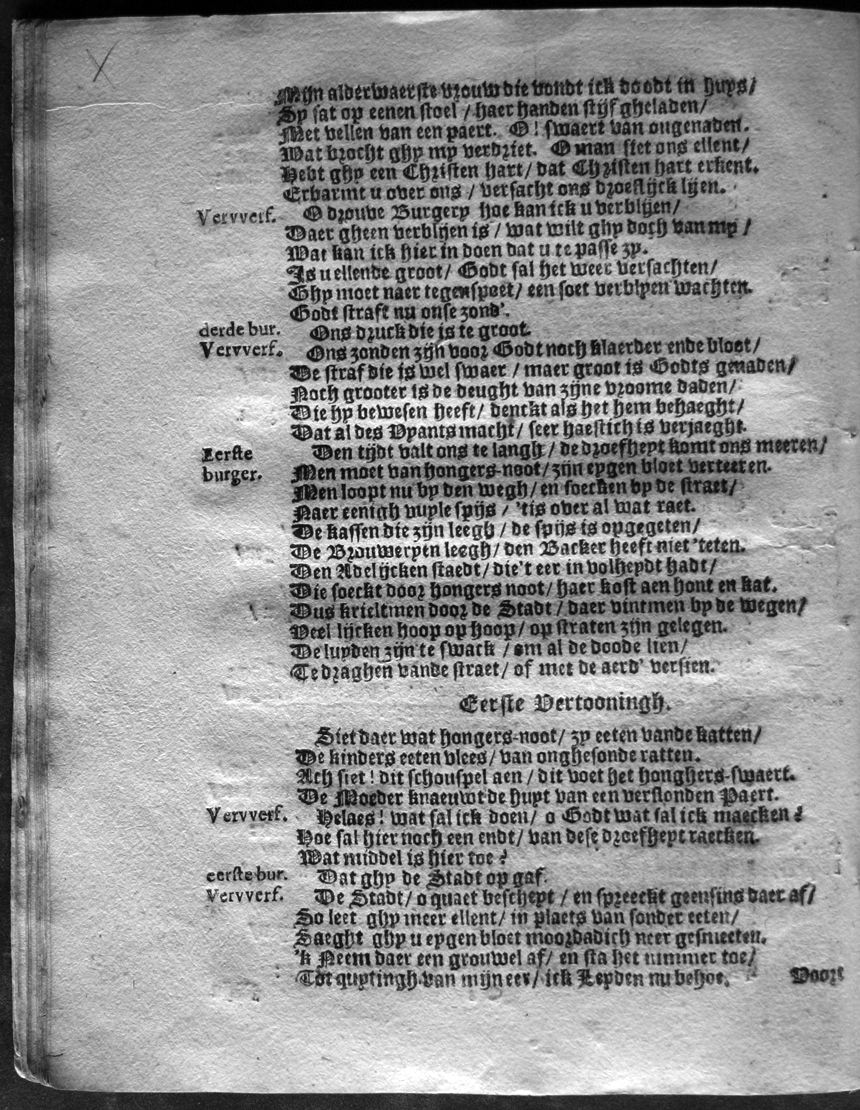 Mijn alderwaerste vrouw die vondt ick doodt in huys/
Sy sat op eenen stoel / haer handen stijf gheladen/
Met vellen van een paert. O! swaert van ongenaden.
Wat brocht ghy my verdriet. O man siet ons ellent/
Hebt ghy een Christen hart/ dat Christen hart erkent.
Erbarmt u over ons / versacht ons droeflijck lijen.
Vervverf. O drouve Burgery hoe kan ick u verblijen/
Daer gheen verblijen is / wat wilt ghy doch van my /
Wat kan ick hier in doen dat u te passe zy.
Is u ellende groot/ Godt sal het weer versachten/
Ghy moet naer tegenspoet/ een soet verblyen wachten.
Godt straft nu onse zond'.
derde bur. Ons druck die is te groot.
Vervverf. Ons zonden zijn voor Godt noch klaerder ende bloot/
De straf die is wel swaer / maer groot is Godts genaden/
Noch grooter is de deught van zijne vroome daden/
Die hy bewesen heeft/ denckt als het hem behaeght/
Dat al des Vyants macht/ seer haestich is verjaeght.
Eerste Den tijdt valt ons te langh / de droefheyt komt ons meeren/
burger. Men moet van hongers-noot/ zijn eygen bloet verteeren.
Men loopt nu by den wegh/ en soecken by de straet/
Naer eenigh vuyle spijs / 'tis over al wat raet.
De kassen die zijn leegh / de spijs is opgegeten/
De Brouweryen leegh/ den Backer heeft niet 'teten.
Den Adelijcken staedt/ die't eer in volheydt hadt/
Die soeckt door hongers noot/ haer kost aen hont en kat.
Dus krieltmen door de Stadt/ daer vintmen by de wegen/
Veel lijcken hoop op hoop/ op straten zijn gelegen.
De luyden zijn te swack / om al de doode lien/
Te draghen vande straet/ of met de aerd' versien.
Eerste Vertooningh.
Siet daer wat hongers-noot/ zy eeten vande katten/
De kinders eeten vlees/ van onghesonde ratten.
Ach siet! dit schouspel aen / dit voet het honghers-swaert.
De Moeder knaeuwt de huyt van een verslonden Paert.
Vervverf. Helaes! wat sal ick doen/ o Godt wat sal ick maecken?
Hoe sal hier noch een endt/ van dese droefheyt raecken.
Wat middel is hier toe?
eerste bur. Dat ghy de Stadt op gaf.
Vervverf. De Stadt/ o quaet bescheyt / en spreeckt geensins daer af/
So leet ghy meer ellent/ in plaets van sonder eeten/
Saeght ghy u eygen bloet moordadich neer gesmeeten.
'k Neem daer een grouwel af/ en sta het nimmer toe/
Tot quytingh van mijn eer/ ick Leyden nu behoe. Voort